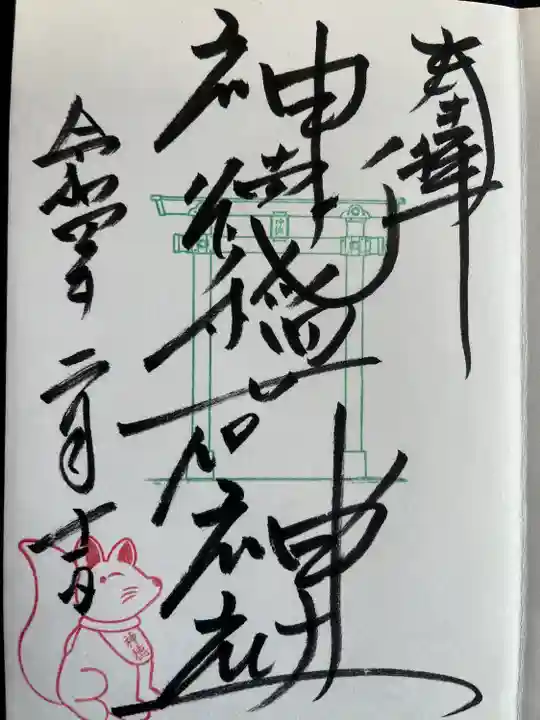 奉拝
神徳稲荷神社
令和四年 二月
神徳